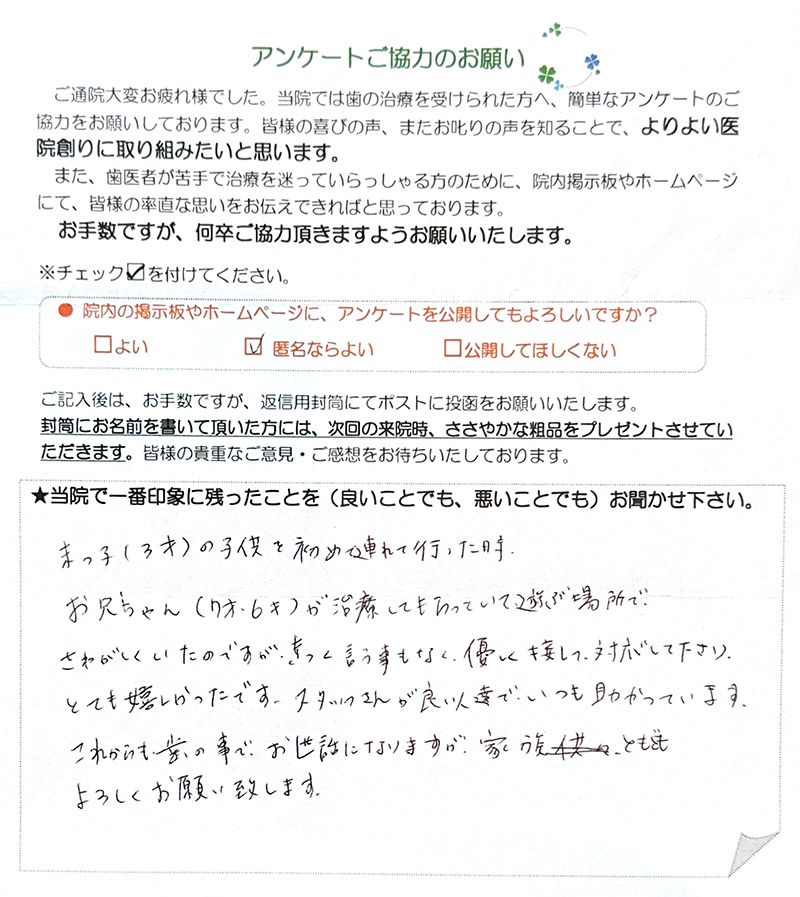 アンケートご協力のお願い
ご通院大変お疲れ様でした。当院では歯の治療を受けられた方へ、簡単なアンケートのご
協力をお願いしております。皆様の喜びの声、またお叱りの声を知ることで、よりよい医
院創りに取り組みたいと思います。
また、歯医者が苦手で治療を迷っていらっしゃる方のために、院内掲示板やホームページ
にて、皆様の率直な思いをお伝えできればと思っております。
お手数ですが、何卒ご協力頂きますようお願いいたします。
※チェック☑を付けてください。
● 院内の掲示板やホームページに、アンケートを公開してもよろしいですか？
☐よい ☑匿名ならよい ☐公開してほしくない
ご記入後は、お手数ですが、返信用封筒にてポストに投函をお願いいたします。
封筒にお名前を書いて頂いた方には、次回の来院時、ささやかな粗品をプレゼントさせてい
ただきます。皆様の貴重なご意見・ご感想をお待ちいたしております。
★当院で一番印象に残ったことを（良いことでも、悪いことでも）お聞かせ下さい。
末っ子(3才)の子供を初めて連れて行った時、
お兄ちゃん(7才、6才)が治療してもらっていて遊ぶ場所で、
さわがしくいたのですが、きつく言う事もなく、優しく接して、対応して下さり、
とても嬉しかったです。スタッフさんが良い人達で、いつも助かっています。
これからも歯の事で、お世話になりますが、家族ともども
よろしくお願い致します。